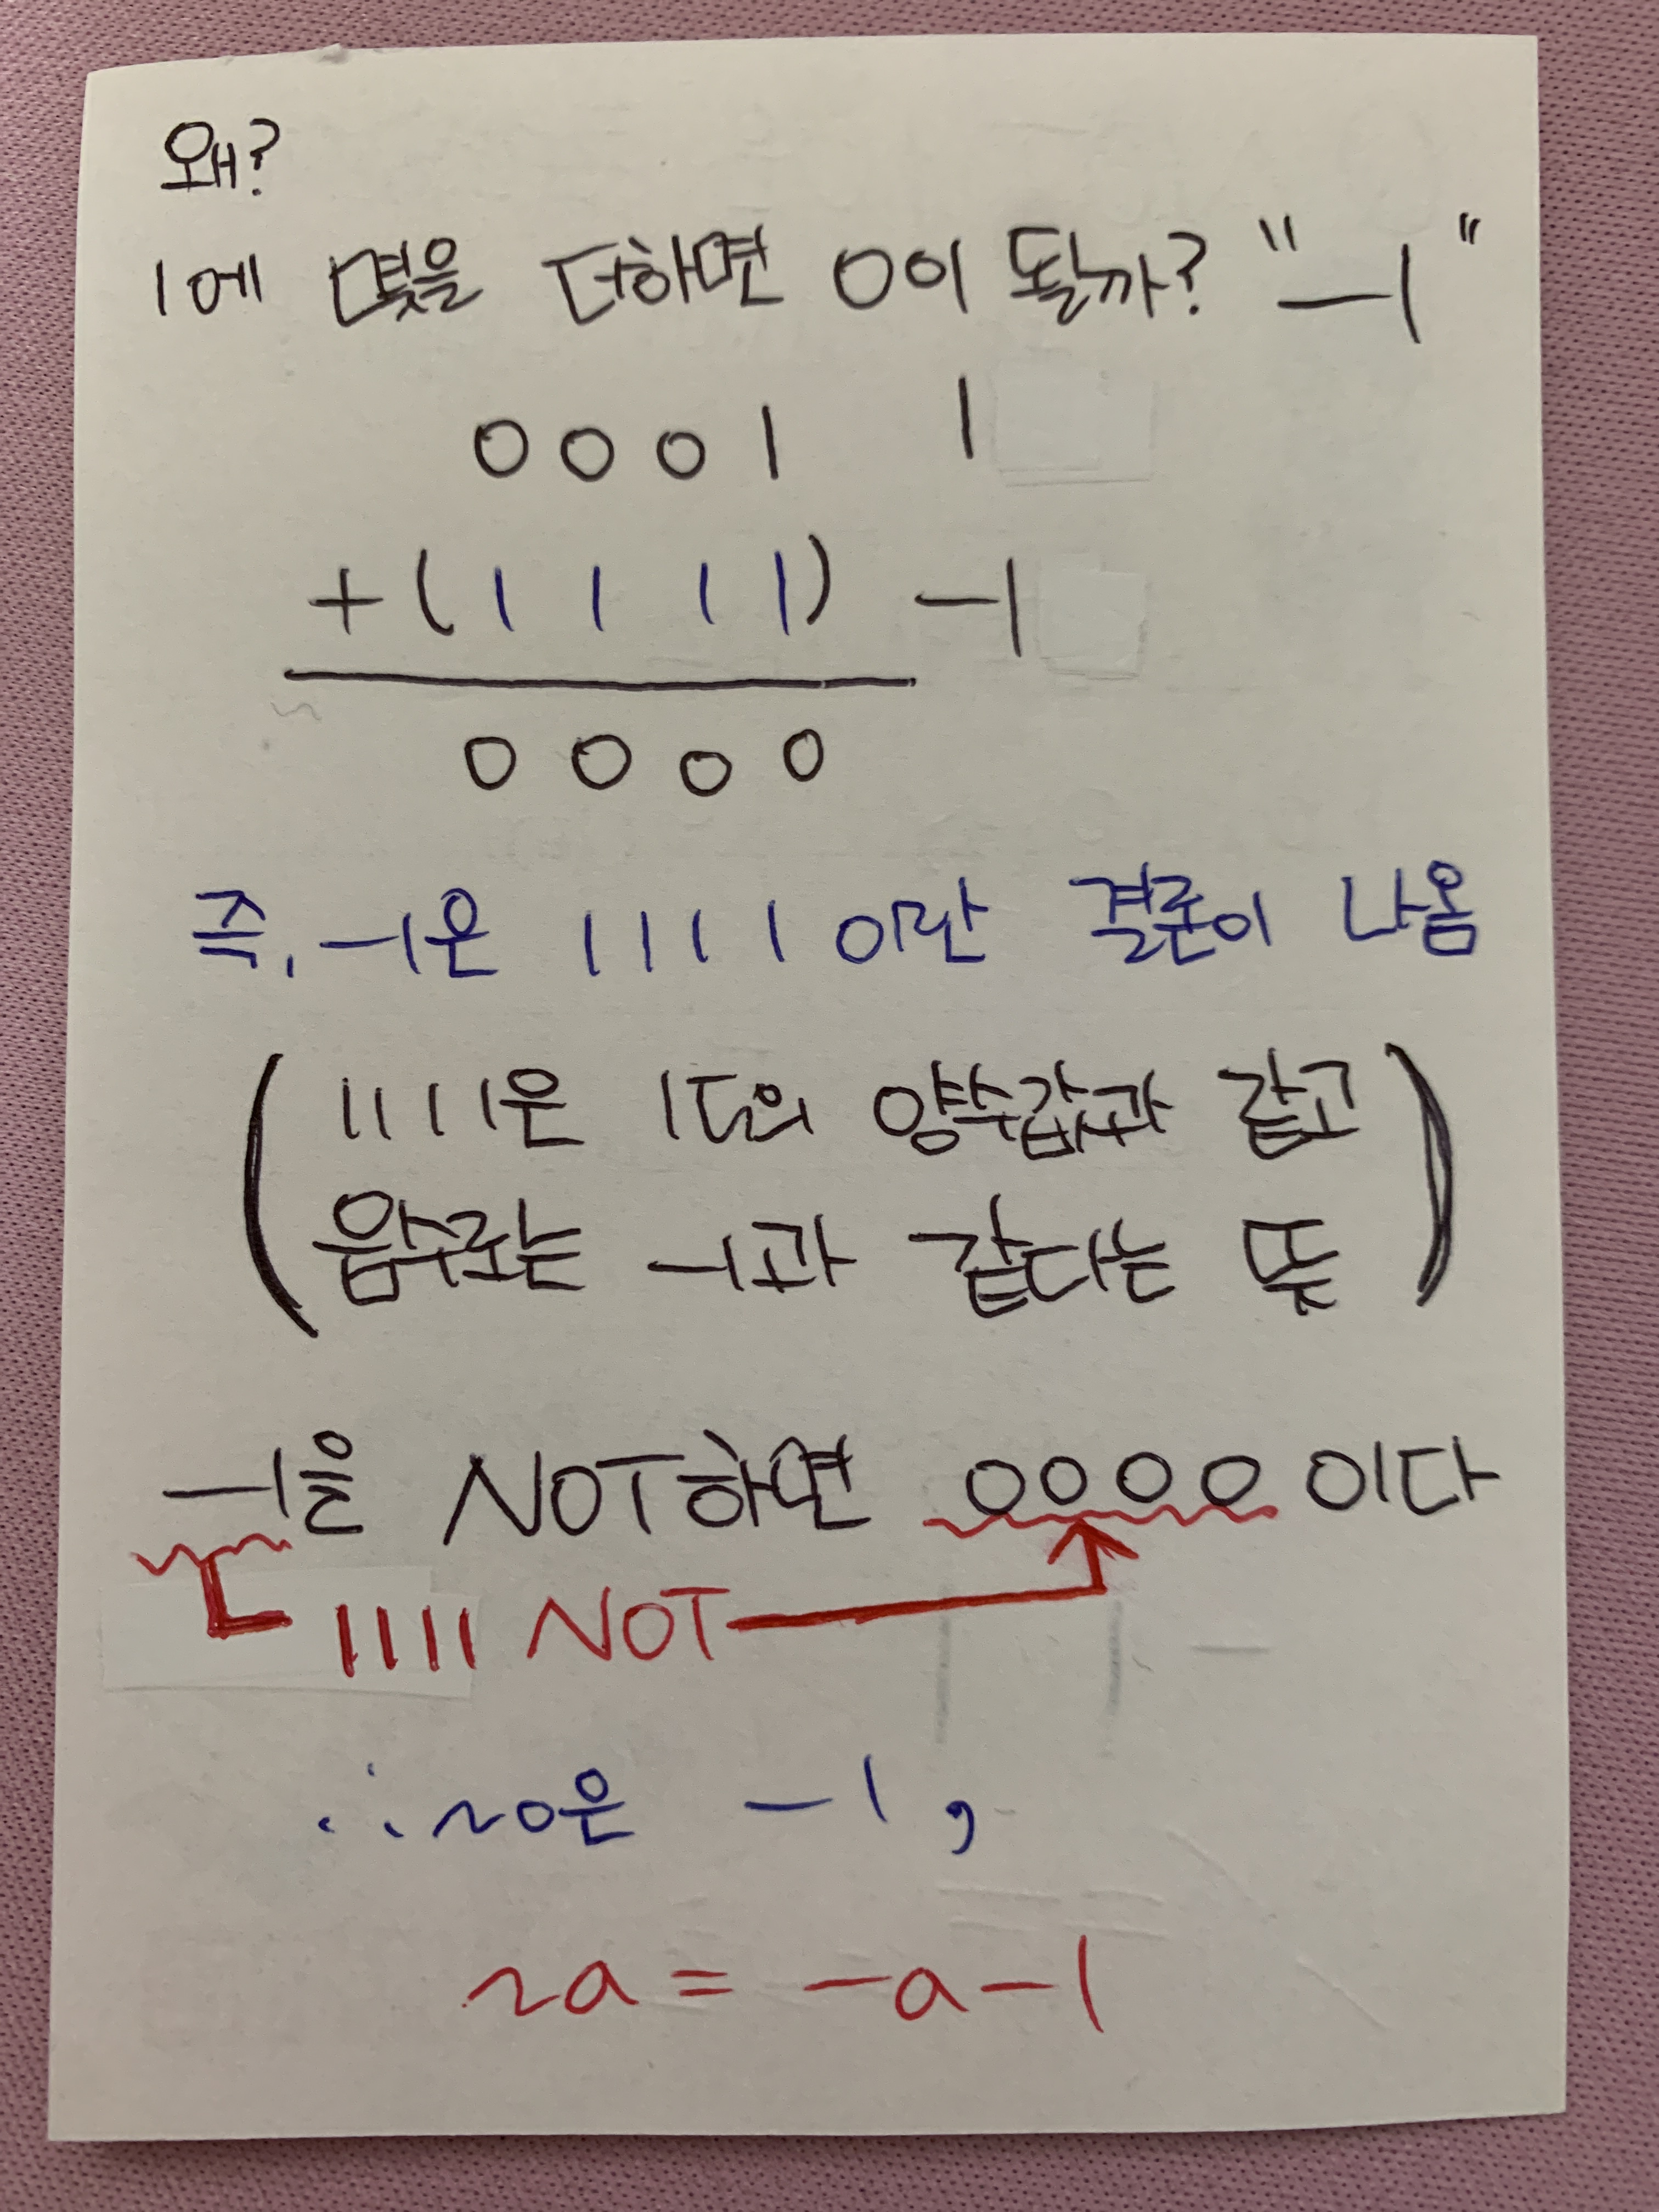 왜?
1에 몇을 더하면 0이 될까? "-1"
0 0 0 1 1
+ ( 1 1 1 1 ) -1
0 0 0 0
즉, -1은 1111이란 결론이 나옴
( 1111은 15의 양수값과 같고
음수로는 -1과 같다는 뜻 )
-1을 NOT하면 0000이다
1111 NOT
∴ ~0은 -1,
~a = -a-1